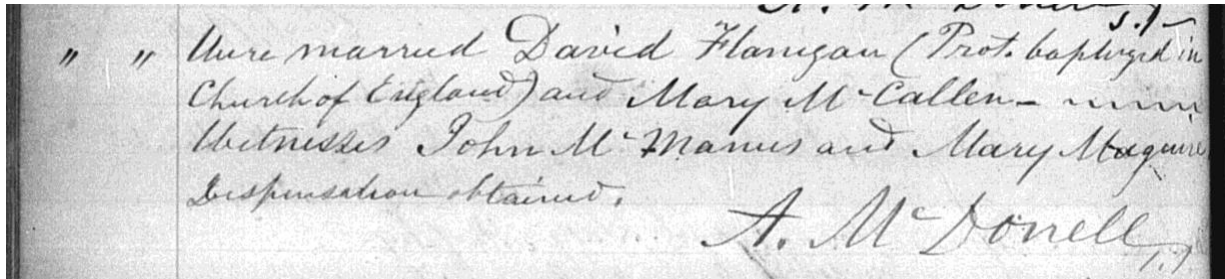 " " Were married David Flanigan (Prot. baptized in
Church of England) and Mary McCallen -
Witnesses John McManus and Mary Maguire
Dispensation obtained.
A. McDonell